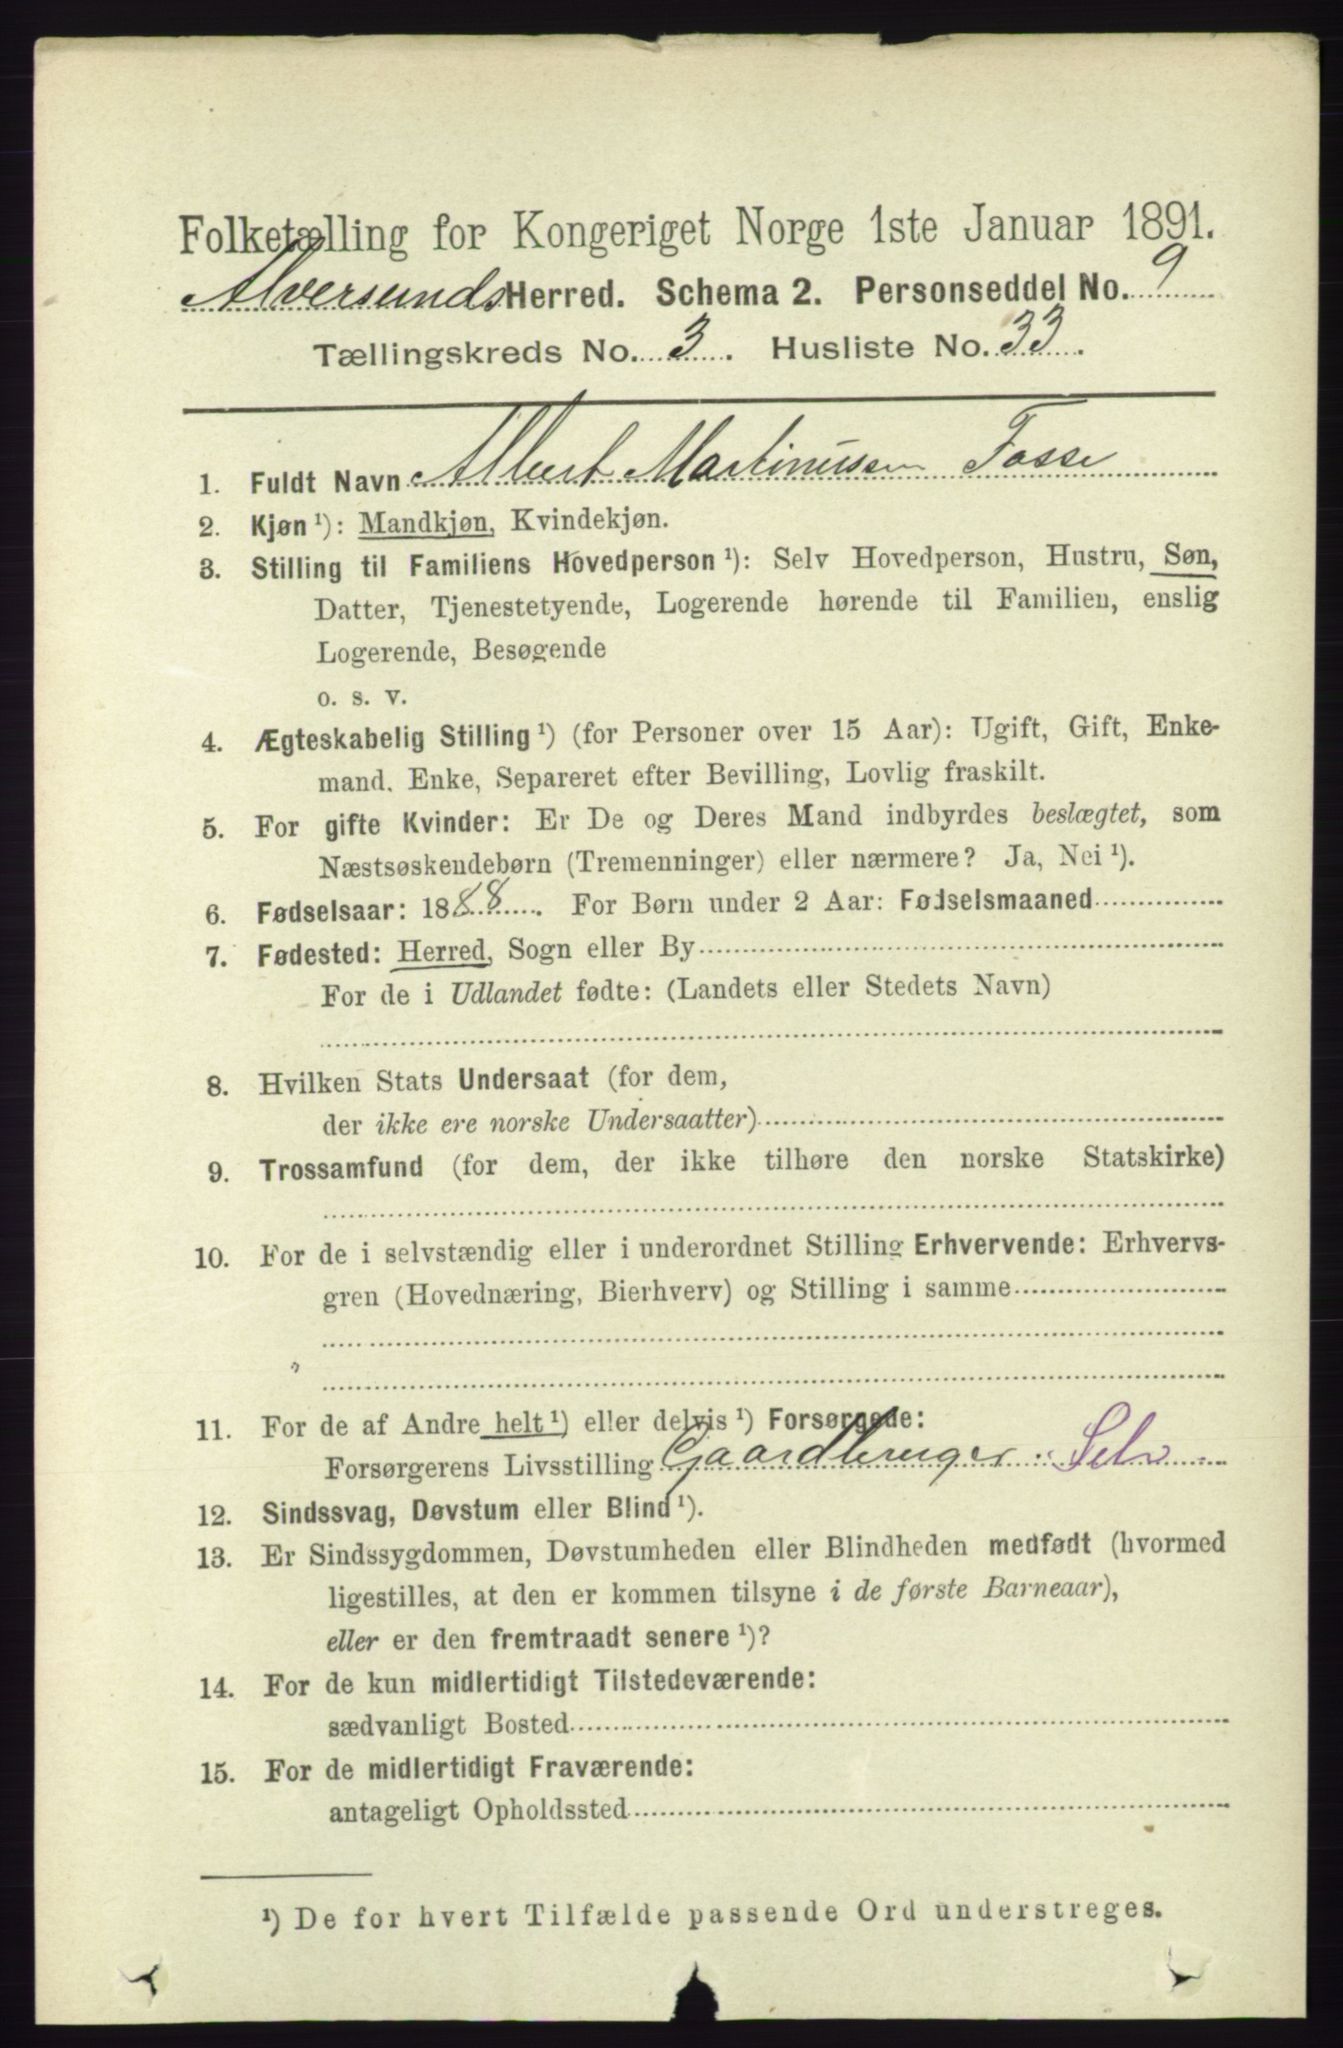 Folketælling for Kongeriget Norge 1ste Januar 1891.
Alversunds Herred. Schema 2. Personseddel No. 9
Tællingskreds No. 3. Husliste No. 33.
1. Fuldt Navn Albert Martinussen Fosse
2. Kjøn ¹): Mandkjøn, Kvindekjøn.
3. Stilling til Familiens Hovedperson ¹): Selv Hovedperson, Hustru, Søn,
Datter, Tjenestetyende, Logerende hørende til Familien, enslig
Logerende, Besøgende
o. s. v.
4. Ægteskabelig Stilling ¹) (for Personer over 15 Aar): Ugift, Gift, Enke-
mand, Enke, Separeret efter Bevilling, Lovlig fraskilt.
5. For gifte Kvinder: Er De og Deres Mand indbyrdes beslægtet, som
Næstsøskendebørn (Tremenninger) eller nærmere? Ja, Nei ¹).
6. Fødselsaar: 1888. For Børn under 2 Aar: Fødselsmaaned
7. Fødested: Herred, Sogn eller By
For de i Udlandet fødte: (Landets eller Stedets Navn)
8. Hvilken Stats Undersaat (for dem,
der ikke ere norske Undersaatter)
9. Trossamfund (for dem, der ikke tilhøre den norske Statskirke)
10. For de i selvstændig eller i underordnet Stilling Erhvervende: Erhvervs-
gren (Hovednæring, Bierhverv) og Stilling i samme
11. For de af Andre helt ¹) eller delvis ¹) Forsørgede:
Forsørgerens Livsstilling Gaardbruger Selv
12. Sindssvag, Døvstum eller Blind ¹).
13. Er Sindssygdommen, Døvstumheden eller Blindheden medfødt (hvormed
ligestilles, at den er kommen tilsyne i de første Barneaar),
eller er den fremtraadt senere ¹)?
14. For de kun midlertidigt Tilstedeværende:
sædvanligt Bosted
15. For de midlertidigt Fraværende:
antageligt Opholdssted
¹) De for hvert Tilfælde passende Ord understreges.